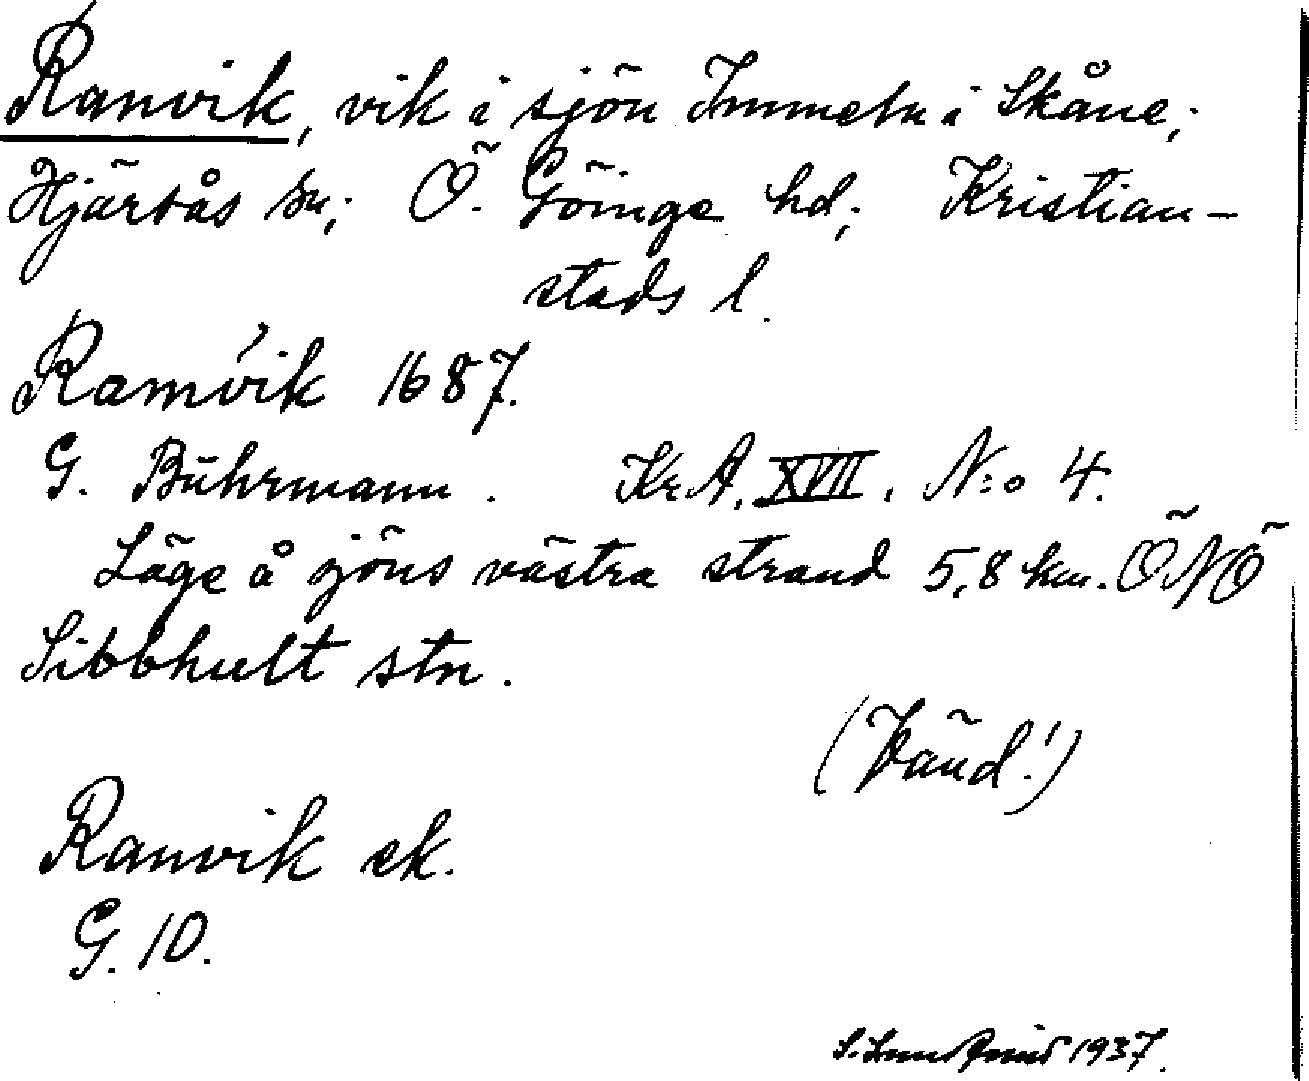 Ranvik, vik i sjön Immeln i Skåne;
Hjärsås sn; Ö. Göinge hd; Kristian-
stads l.
Ramvik 1687.
G. Buhrmann. Kr.A. XVII. N:o 4.
Läge å sjöns västra strand 5,8 km. ÖNÖ
Sibbhult stn.
(Vänd!)
Ranvik ek.
G. 10.
1937.